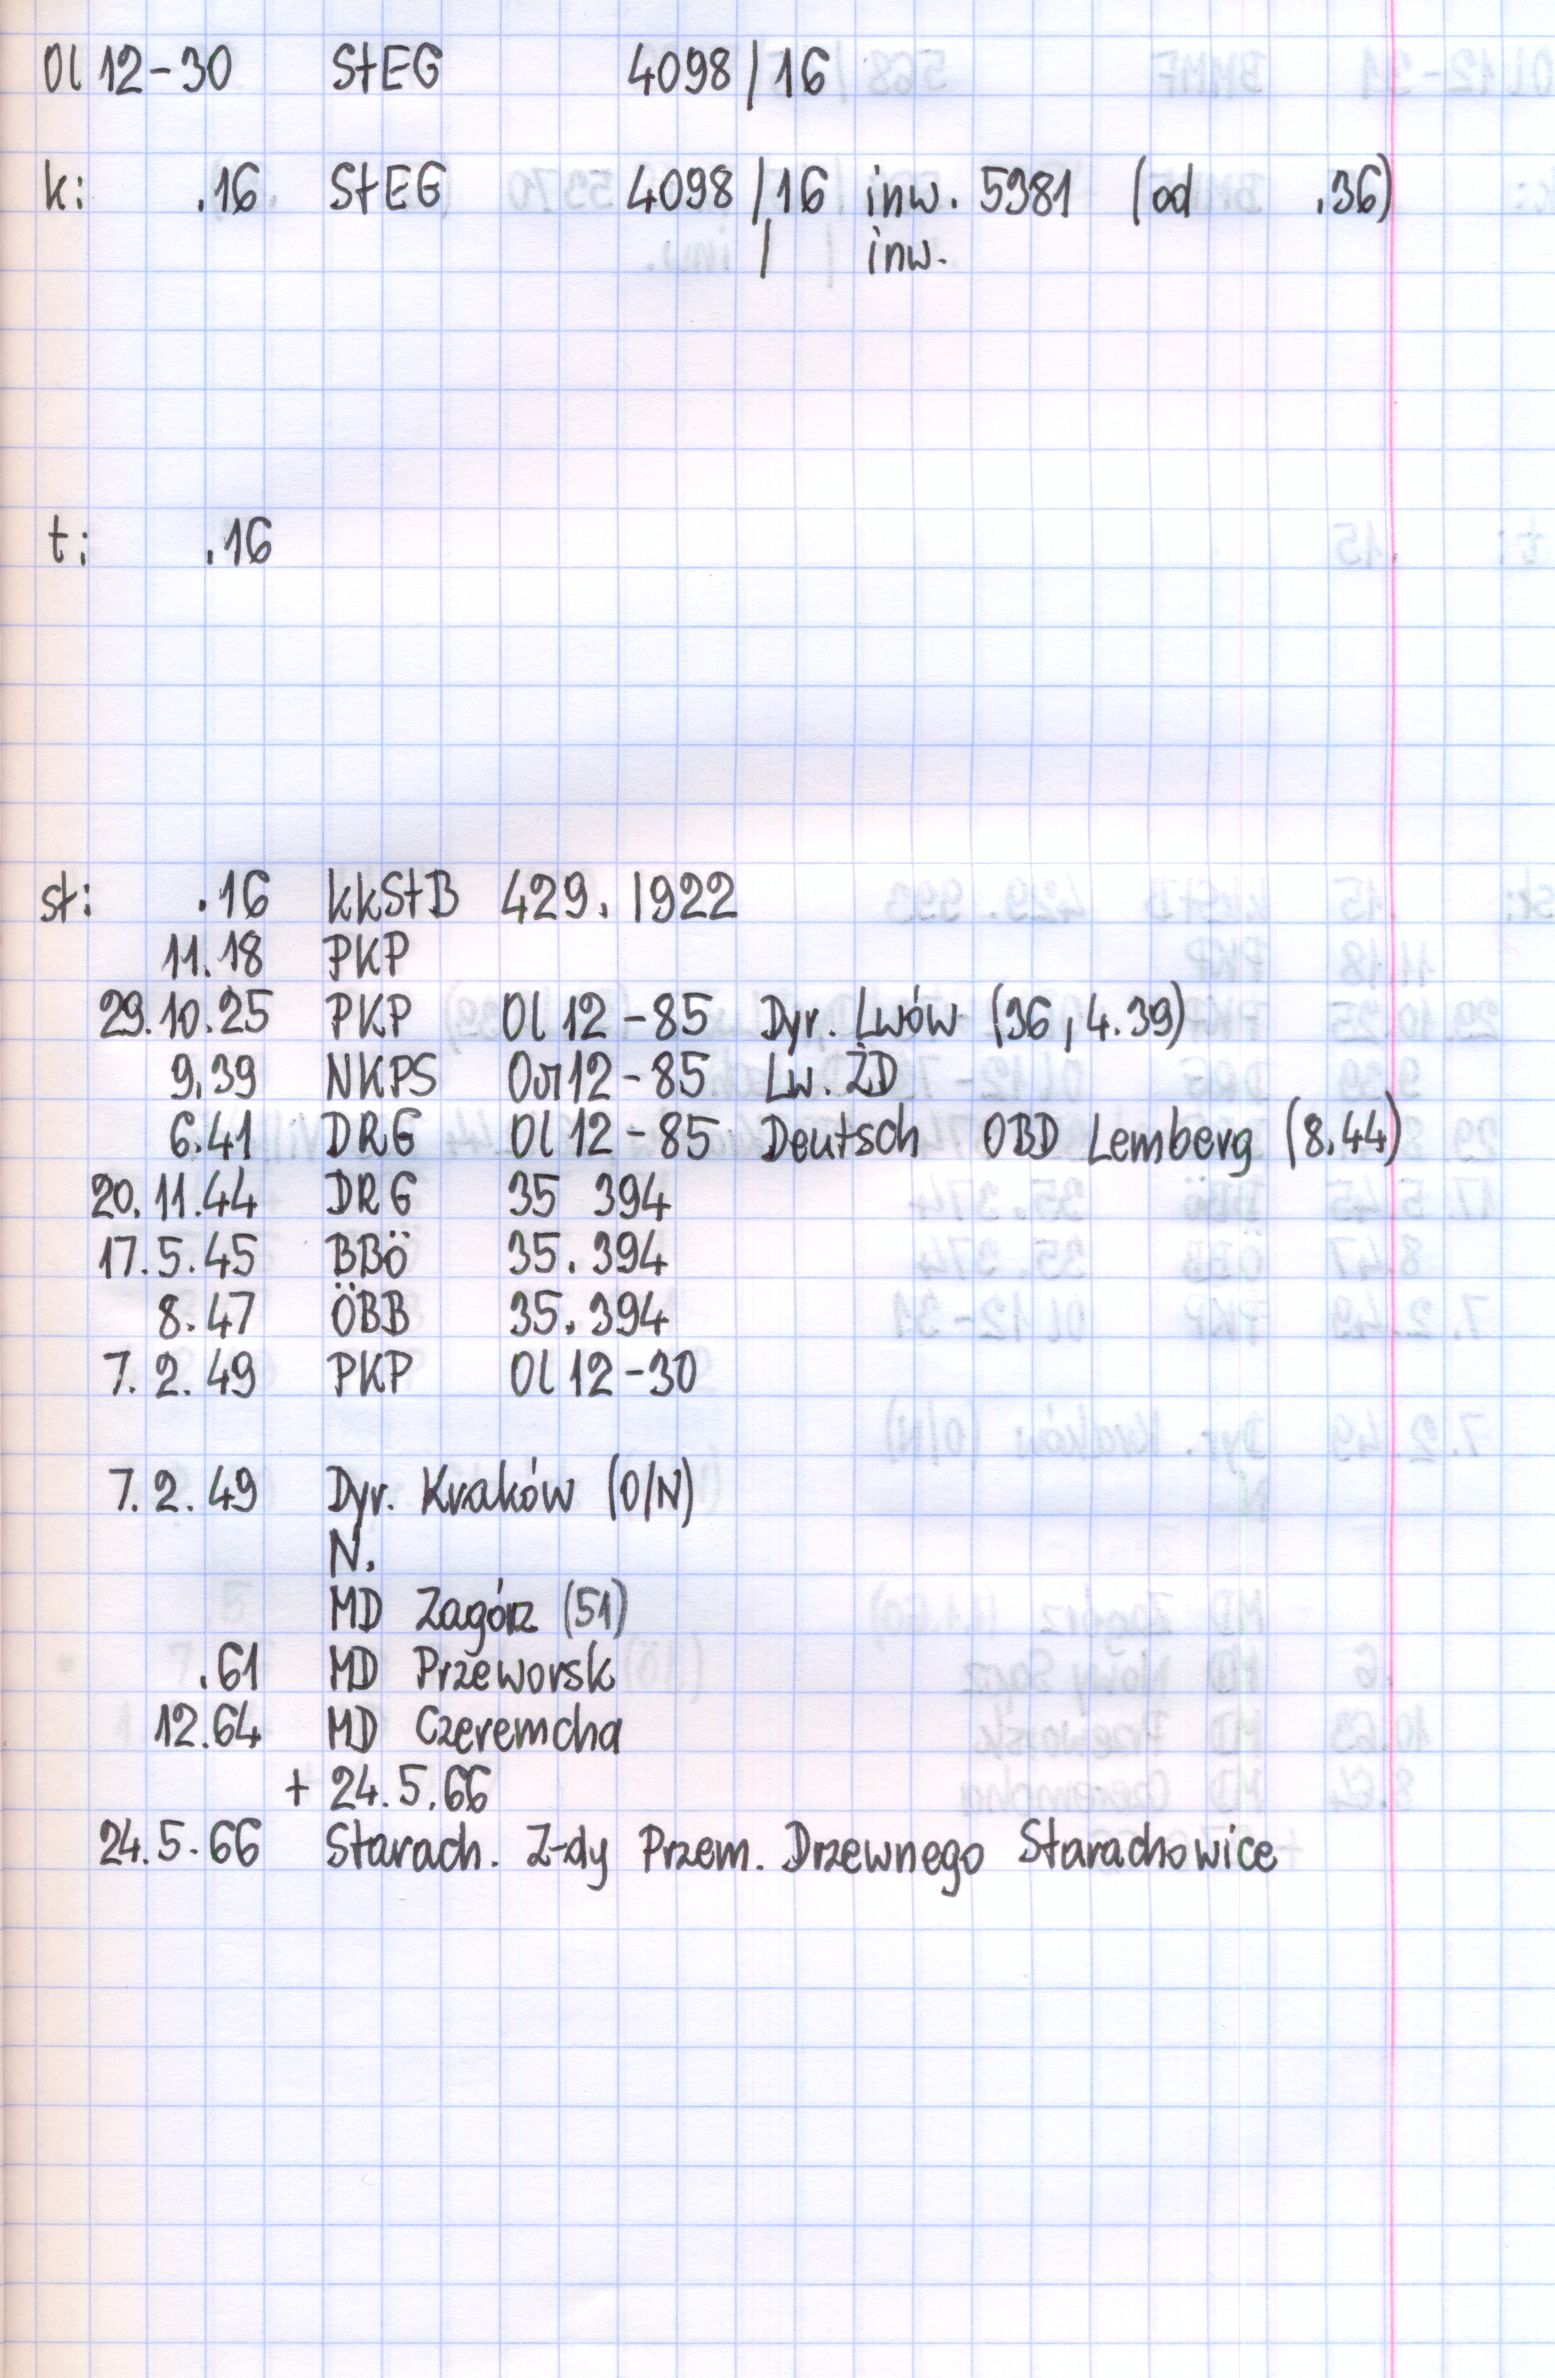 Ol 12-30 StEG 4098/16
k: .16 StEG 4098/16 inw. 5981 (od .36)
/ inw.
t: .16
st: .16 kkStB 429.1922
11.18 PKP
29.10.25 PKP Ol 12-85 Dyr. Lwów (36, 4.39)
9.39 NKPS Ол12-85 Lw. ŻD
6.41 DRG Ol 12-85 Deutsch OBD Lemberg (8.44)
20.11.44 DRG 35 394
17.5.45 BBÖ 35.394
8.47 ÖBB 35.394
7.2.49 PKP Ol 12-30
7.2.49 Dyr. Kraków (O/N)
N.
MD Zagórz (51)
.61 MD Przeworsk
12.64 MD Czeremcha
+ 24.5.66
24.5.66 Starach. Z-dy Przem. Drzewnego Starachowice